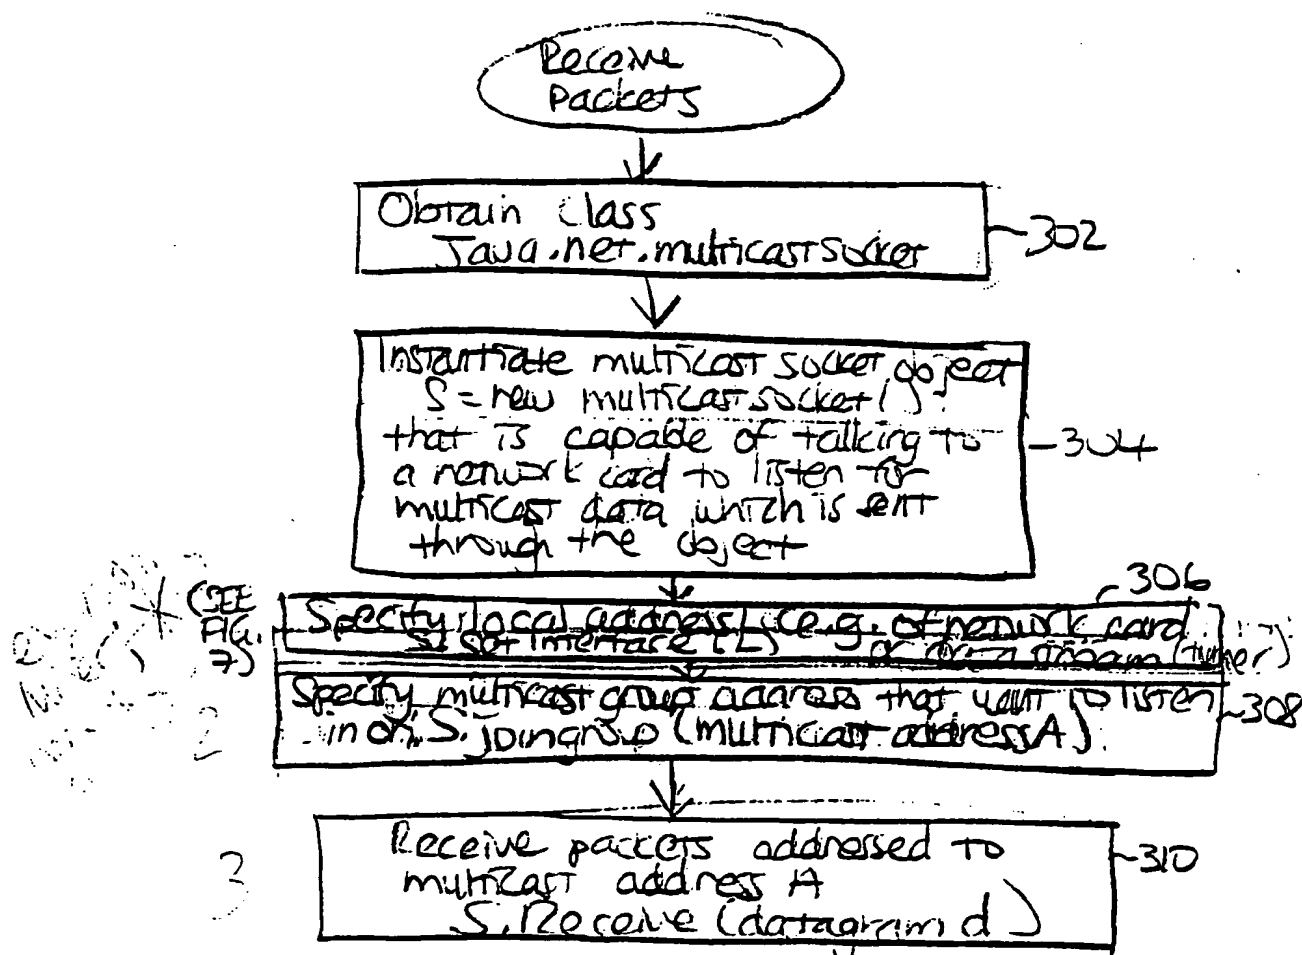 Receive
packets
Obtain class
Java.net.multicastsocket
302
Instantiate multicast socket object
S = new multicastsocket( )
that is capable of talking to
a network card to listen for
multicast data which is sent
through the object
304
306
(SEE
FIG.
7)
Specify local address L (e.g. of network card
S. Set Interface (L) or data stream (tuner)
Specify multicast group address that want to listen
in on; S. joingroup (multicast address A)
308
2
Receive packets addressed to
multicast address A
S. Receive (datagram d)
310
3